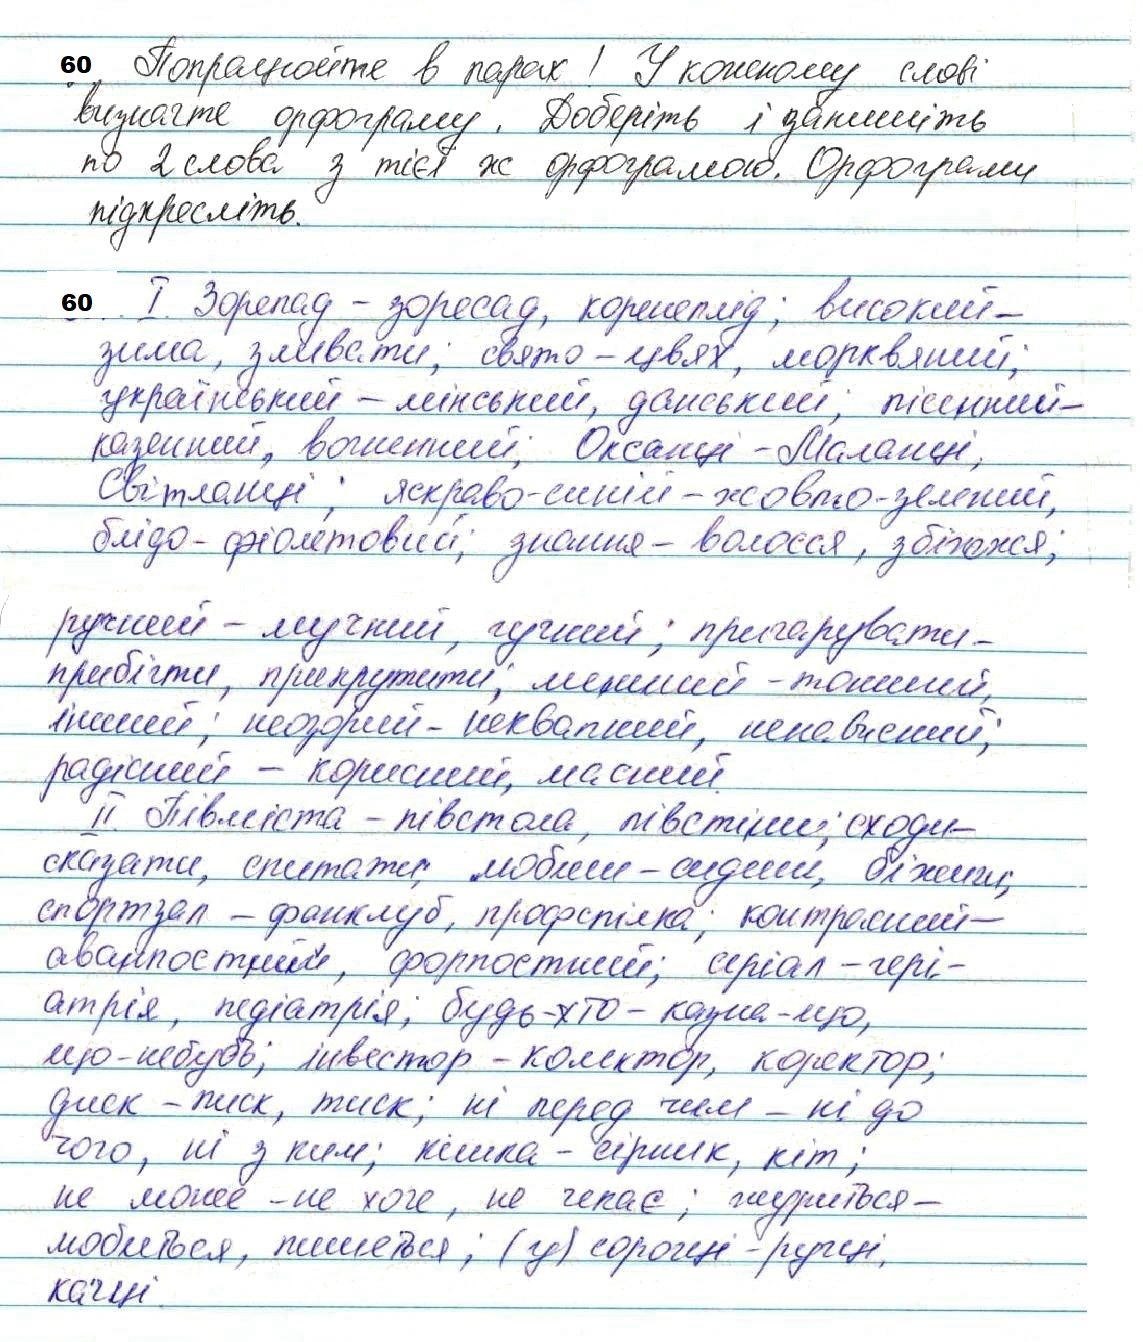 60 Попрацюйте в парах! У кожному слові
визначте орфограму. Доберіть і запишіть
по 2 слова з тієї ж орфограмою. Орфограми
підкресліть.
60 І. Зорепад – зоресад, коренеплід; високий –
зима, зливати; свято – цвях, морквяний;
український – мінський, данський; пісенний –
казенний, вогненний; Оксанці – Маланці,
Світланці; яскраво-синій – жовто-зелений,
блідо-фіолетовий; знання – волосся, збіжжя;
ручний – мучний, гучний; пригарувати –
прибігти, прикрутити; менший – тонший,
інший; неозорий – неквапний, ненависний;
радісний – корисний, масний.
ІІ. Півміста – півстола, півстіни; сходи –
сказати, спитати; любиш – сидиш, біжиш;
спортзал – фанклуб, профспілка; контрасний –
аванпостний, форпостний; серіал – гері-
атрія, педіатрія; будь-хто – казна-що,
що-небудь; інвестор – колектор, коректор;
диск – писк, тиск; ні перед чим – ні до
чого, ні з ким; кішка – сірник, кіт;
не може – не хоче, не чекає; журиться –
любиться, пишеться; (у) сорочці – ручці,
качці.